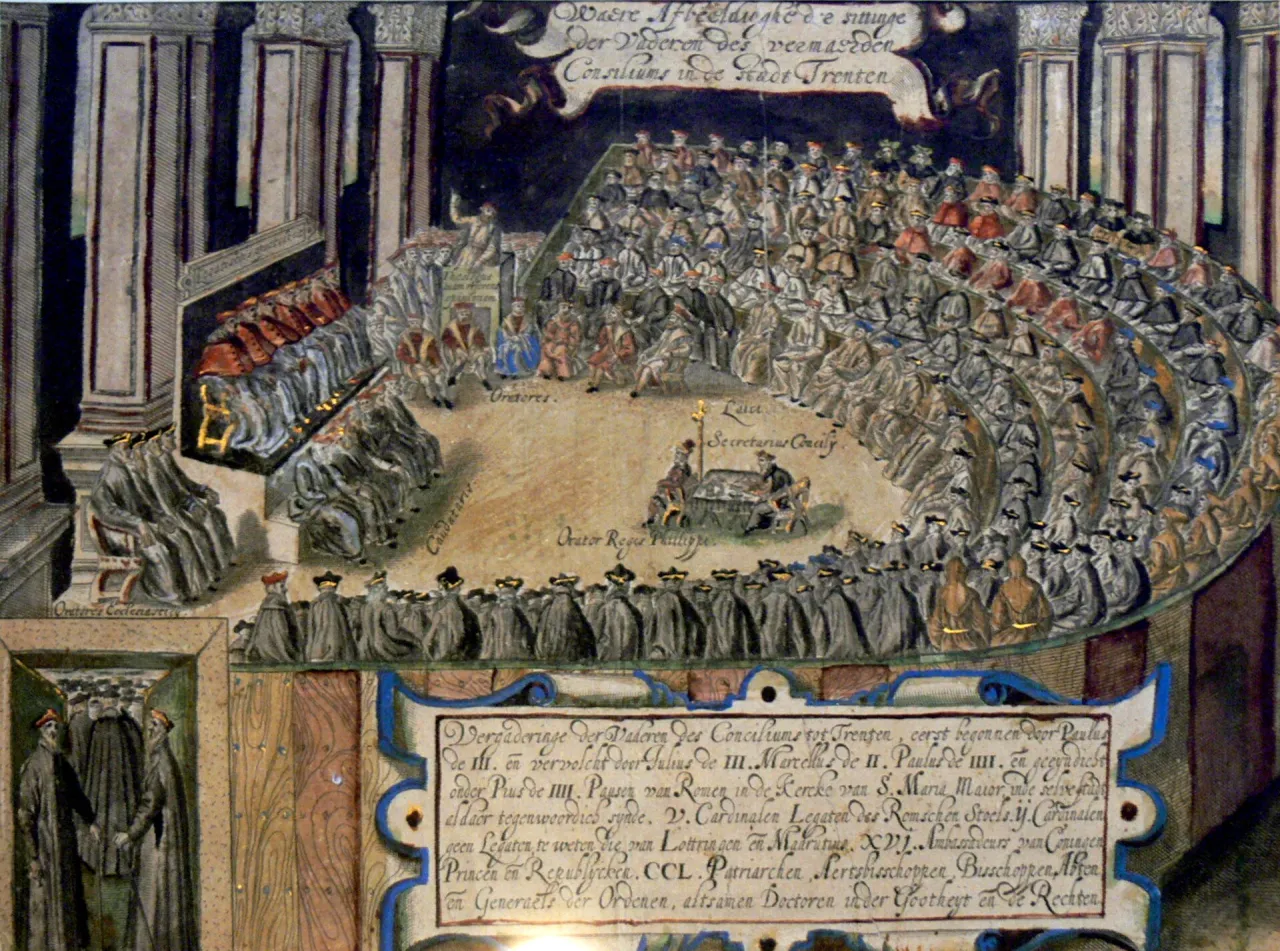 Waere Afbeeldinghe de sittinge
der Vaderen des vermaerden
Consiliums in de Stadt Trenten
Oratores.
Laici
Secretarius Concilÿ.
Orator Regis Philippi.
Oratores Ecclesiastici
Vergaderinge der Vaderen des Conciliums tot Trenten, eerst begonnen door Paulus
de III. en vervolcht door Julius de III. Marcellus de II. Paulus de IIII. en geeyndicht
onder Pius de IIII. Pausen van Romen in de Kercke van S. Maria Maior, inde selve stadt
aldaer tegenwoordich synde. V. Cardinalen Legaten des Romschen Stoels. ij. Cardinalen
geen Legaten te weten die van Lottringen en Madrutius. XVI. Ambassadeurs van Coningen
Princen en Republÿcken. CCL. Patriarchen, Aertsbisschoppen, Bisschoppen, Abten
en Generaels der Ordenen, altsamen Doctoren inder Gootheyt en de Rechten